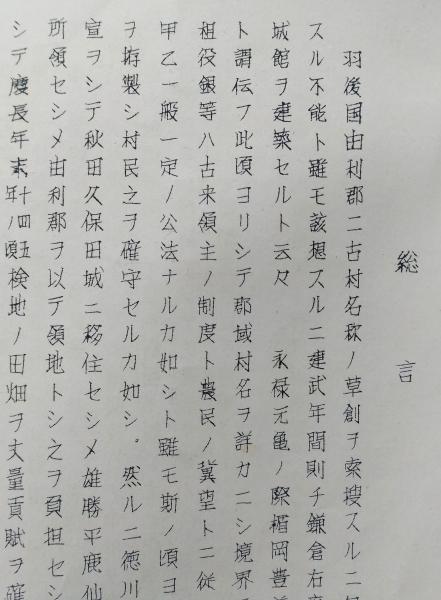 総言
羽後国由利郡ニ古村名称ノ草創ヲ索捜スルニ
スル不能ト雖モ該想スルニ建武年間則チ鎌倉右
城館ヲ建築セルト云々 永禄元亀ノ際楯岡豊
ト謂伝フ此頃ヨリシテ郡域村名ヲ詳カニシ境界
租役銀等ハ古来領主ノ制度ト農民ノ冀望トニ従
甲乙一般一定ノ公法ナルカ如シト雖モ斯ノ頃ヨ
ヲ擬製シ村民之ヲ確守セルカ如シ。然ルニ徳川
宣ヲシテ秋田久保田城ニ移住セシメ雄勝平鹿仙
所領セシメ由利郡ヲ以テ領地トシ之ヲ負担セシ
シテ慶長年末十四五年ノ頃検地ノ田畑ヲ丈量貢賦ヲ確